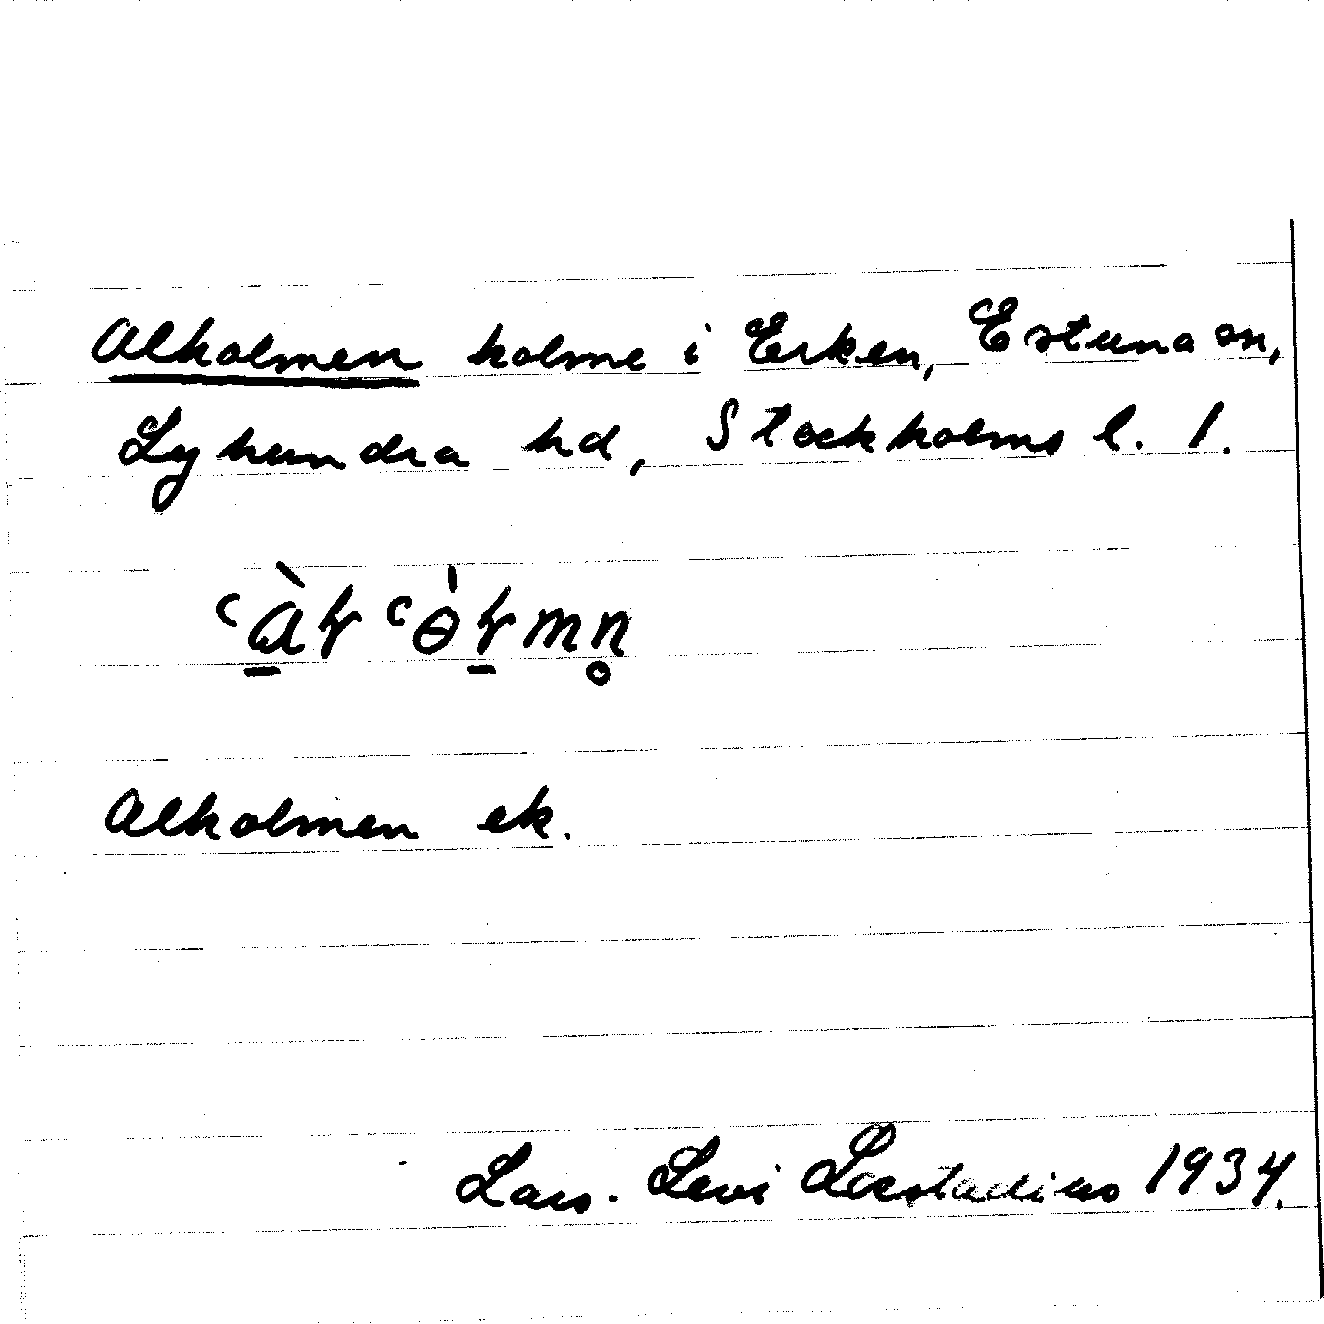 Alholmen holme i Erken, Estuna sn,
Lyhundra hd, Stockholms l. 1.
Alholmen ek.
Lars. Levi Læstadius 1934.